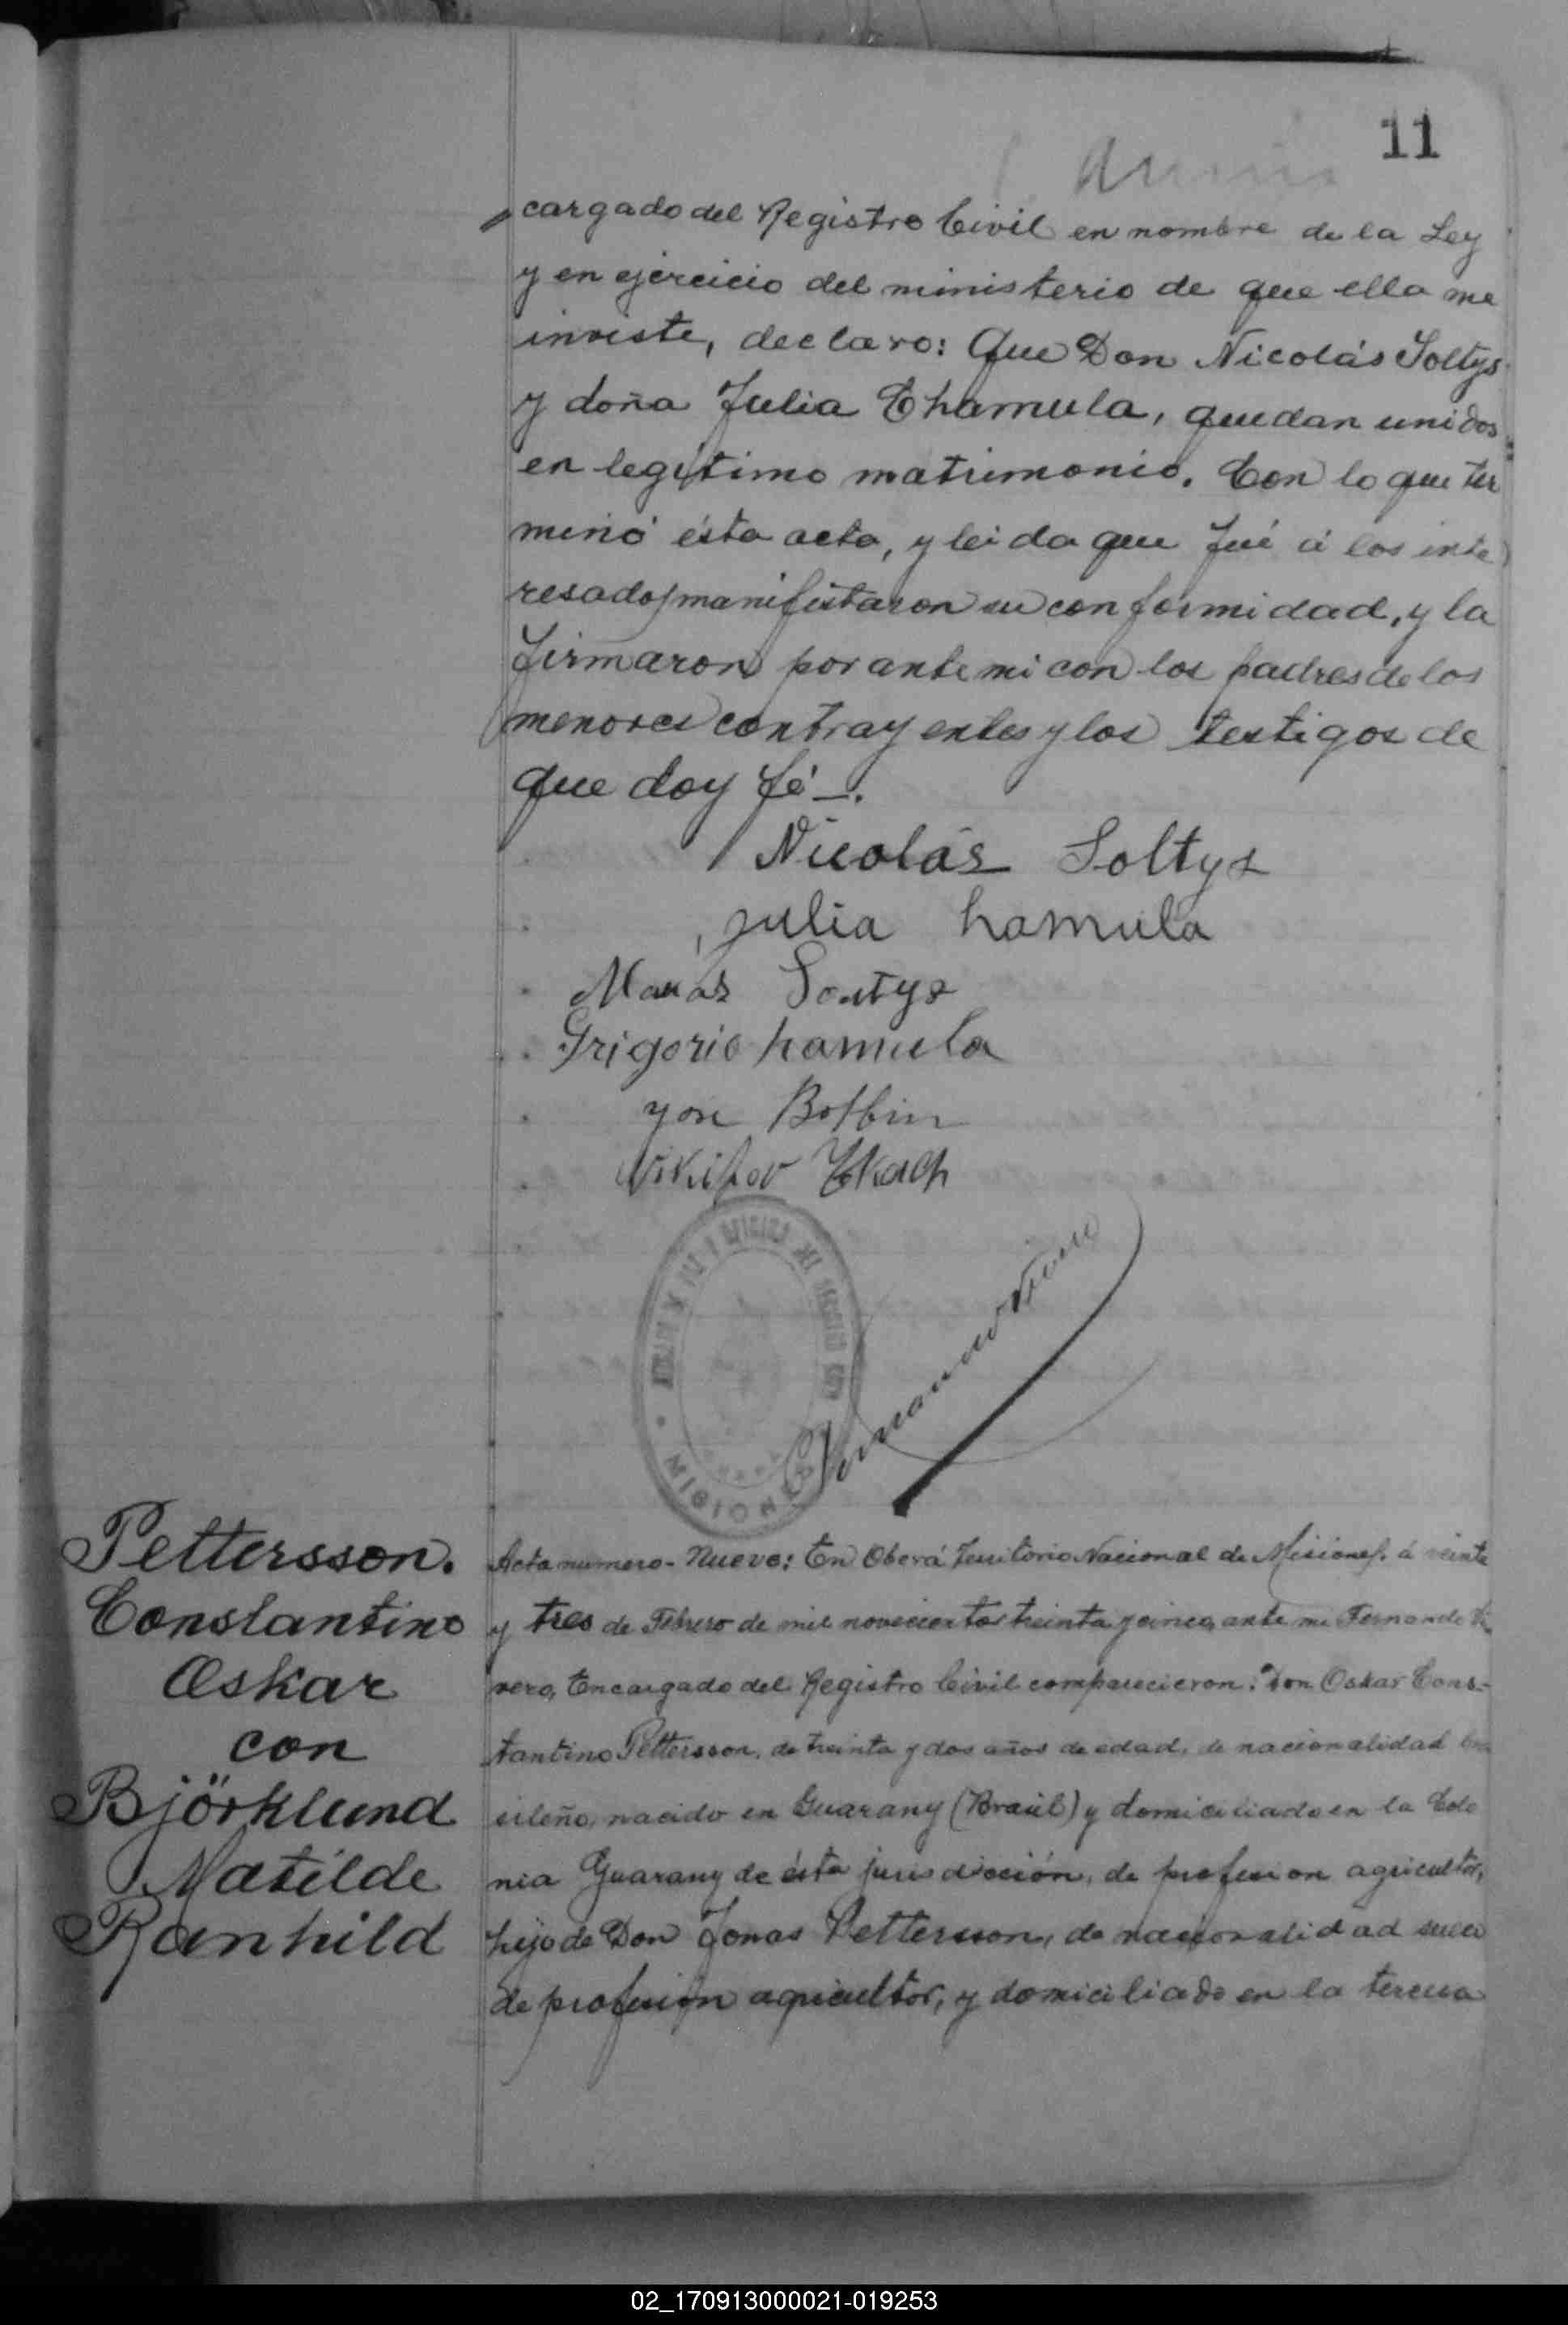 11
cargado del Registro Civil en nombre de la Ley
y en ejercicio del ministerio de que ella me
inviste, declaro: Que Don Nicolás Soltys
y doña Julia Chamula, quedan unidos
en legítimo matrimonio. Con lo que ter
minó ésta acta, y leida que fué á los inte
resados manifestaron su conformidad, y la
firmaron por ante mi con los padres de los
menores contrayentes y los testigos de
que doy fé_.
Nicolás Soltys
Julia hamula
Grigorio hamula
MISIONES
Pettersson.
Constantino
Oskar
con
Björklund
Matilde
Ranhild
Acta numero - Nueve: En Oberá Territorio Nacional de Misiones. á veinte
y tres de Febrero de mil novecientos treinta y cinco, ante mi Fernando Vi
vero, Encargado del Registro Civil comparecieron: Don Oskar Cons-
tantino Pettersson, de treinta y dos años de edad, de nacionalidad bra
sileño, nacido en Guarany (Brasil) y domiciliado en la Colo
nia Guarany de ésta jurisdicción, de profesion agricultor,
hijo de Don Jonas Pettersson, de nacionalidad sueca
de profesión agricultor, y domiciliado en la tercera
02_170913000021-019253